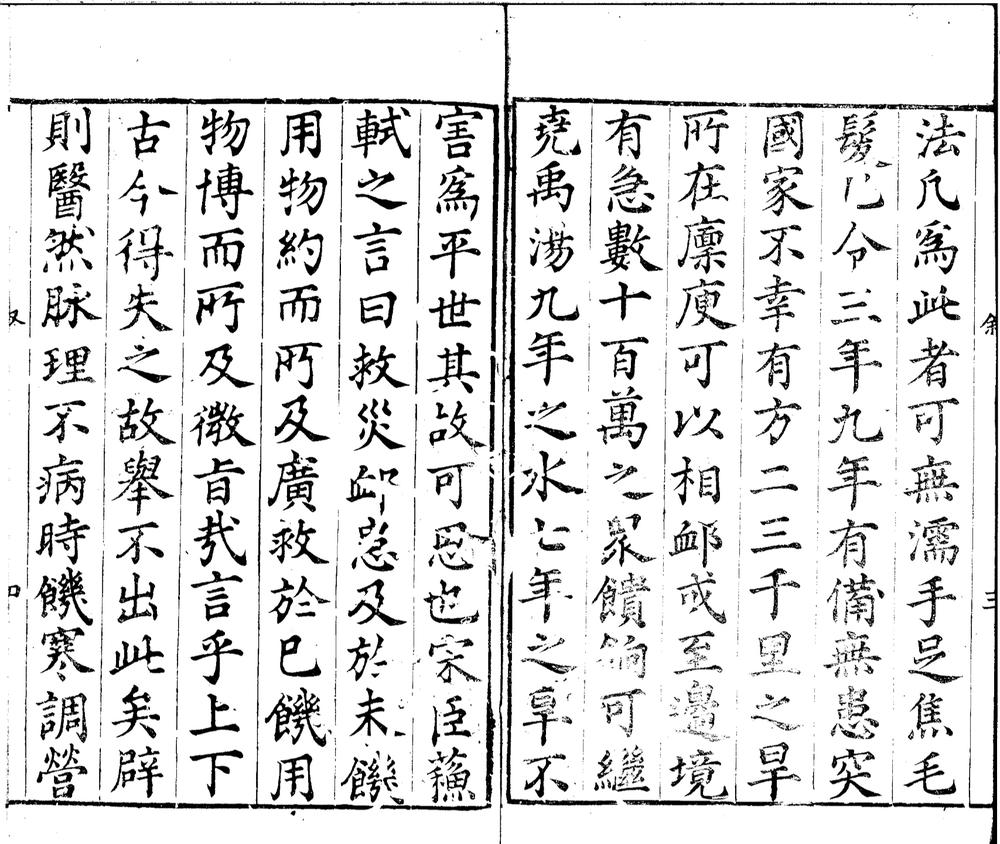 法凡爲此者可無濡手足焦毛
髮已今三年九年有備無患突
國家不幸有方二三千里之旱
所在廩庾可以相䘏或至邊境
有急數十百萬之衆饋餉可繼
堯禹湯九年之水七年之旱不
害爲平世其故可思也宋臣蘇
軾之言曰救災䘏急及於未饑
用物約而所及廣救於已饑用
物博而所及微旨哉言乎上下
古今得失之故舉不出此矣辟
則醫然脉理不病時饑寒調營